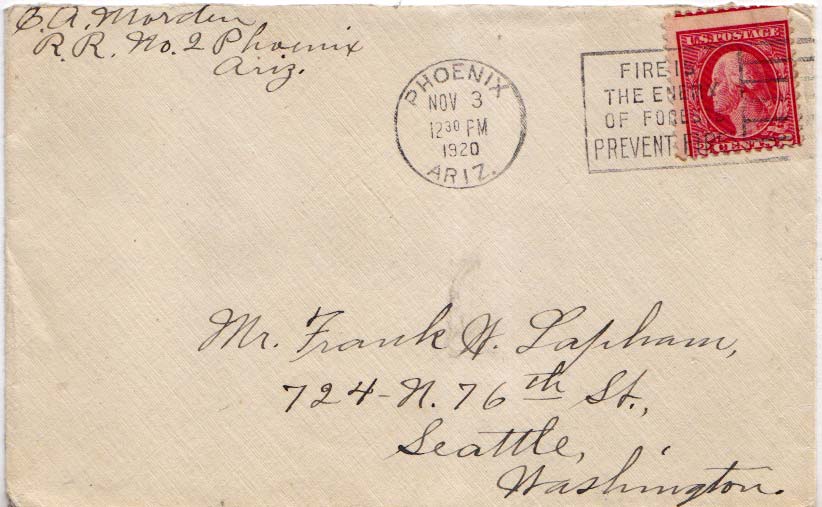 C. A. Morden
R. R. No. 2 Phoenix
Ariz.
PHOENIX
NOV 3
12 30 PM
1920
ARIZ.
FIRE IS
THE ENEMY
OF FOREST
PREVENT FIRE
U.S. POSTAGE
2 CENTS 2
Mr. Frank H. Lapham,
724-N. 76th St.,
Seattle,
Washington.